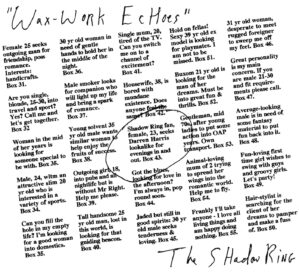 "Wax-Work Echoes"
Female 25 seeks
outgoing man for
friendship, pos-
romance.
Interests:
handicrafts.
Box 31.
Are you single,
blonde, 25-30, into
travel and sport?
Yes? Call me and
let's get together!
Box 32
Woman in the mid
of her years is
looking for
someone special to
be with. Box 33.
Male, 24, witm an
attractive slim 20
yr old who is
interested in a
variety of sports.
Box 34.
Can you fill the
hole in my empty
life? I'm looking
for a good woman
into domestics.
Box 35.
30 yr old woman in
need of gentle
hands to hold her in
the middle of the
night.
Box 36.
Male smoker looks
for companion who
will light up my life
and bring a spark
of romance.
Box 37.
Young solvent 35
yr old male wants
similar woman to
help enjoy the
fruits of
Box 38.
Outgoing girl, 35
into pubs and
nightlife but is
without Mr Right.
Help me please.
Box 39.
Tall handsome 25
yr old man, lost in
this world, is
looking for that
guiding beacon.
Box 40.
Single mum, 20,
tired of the TV.
Can you switch
me on to a
channel of
excitement?
Box 41.
Housewife, 38, is
bored with
mundane
existence. Does
anyone
Box 42.
Shadow Ring fan,
female, 23, seeks
Darren Harris
lookalike for
swings in and
out. Box 43.
Got the blues,
looking for love in
the afternoon?
I'm always in, pop
round soon.
Box 44.
Jaded but still in
good spirits: 30 yr
old male seeks
tenderness &
loving. Box 45.
Hold on fellas!
Sexy 39 yr old ex
model is looking
for playmates, I
put to be
missed. Box 51.
Buxom 21 yr old is
looking for the
man of her
dreams. Must be
into great fun &
thrills. Box 52.
Gentleman, mid
50s, after young
ladies to put some
action into OAP
years. Own
transport. Box 53.
Animal-loving
mum of 2 trying
to spread her
wings into the
romantic world.
Help me to fly.
Box 54.
Frankly I'll take
anyone - I love all
living things and
am happy doing
nothing. Box 55.
31 yr old woman,
desperate to meet
rugged foreigner
to sweep me off
my feet. Box 46.
Great personality
is my main
concern. If you
are male 21-30
and fit require-
ments please
call. Box 47.
Average-looking
male is in need of
some fantasy
material to put
fun back into his
life. Box 48.
Fun-loving first
time girl wishes to
swing with guys
and groovy girls.
Let's party!
Box 49.
Hair-stylist is
searching for the
client of her
dreams to pamper
and be a fan of.
Box 50.
The Shadow Ring